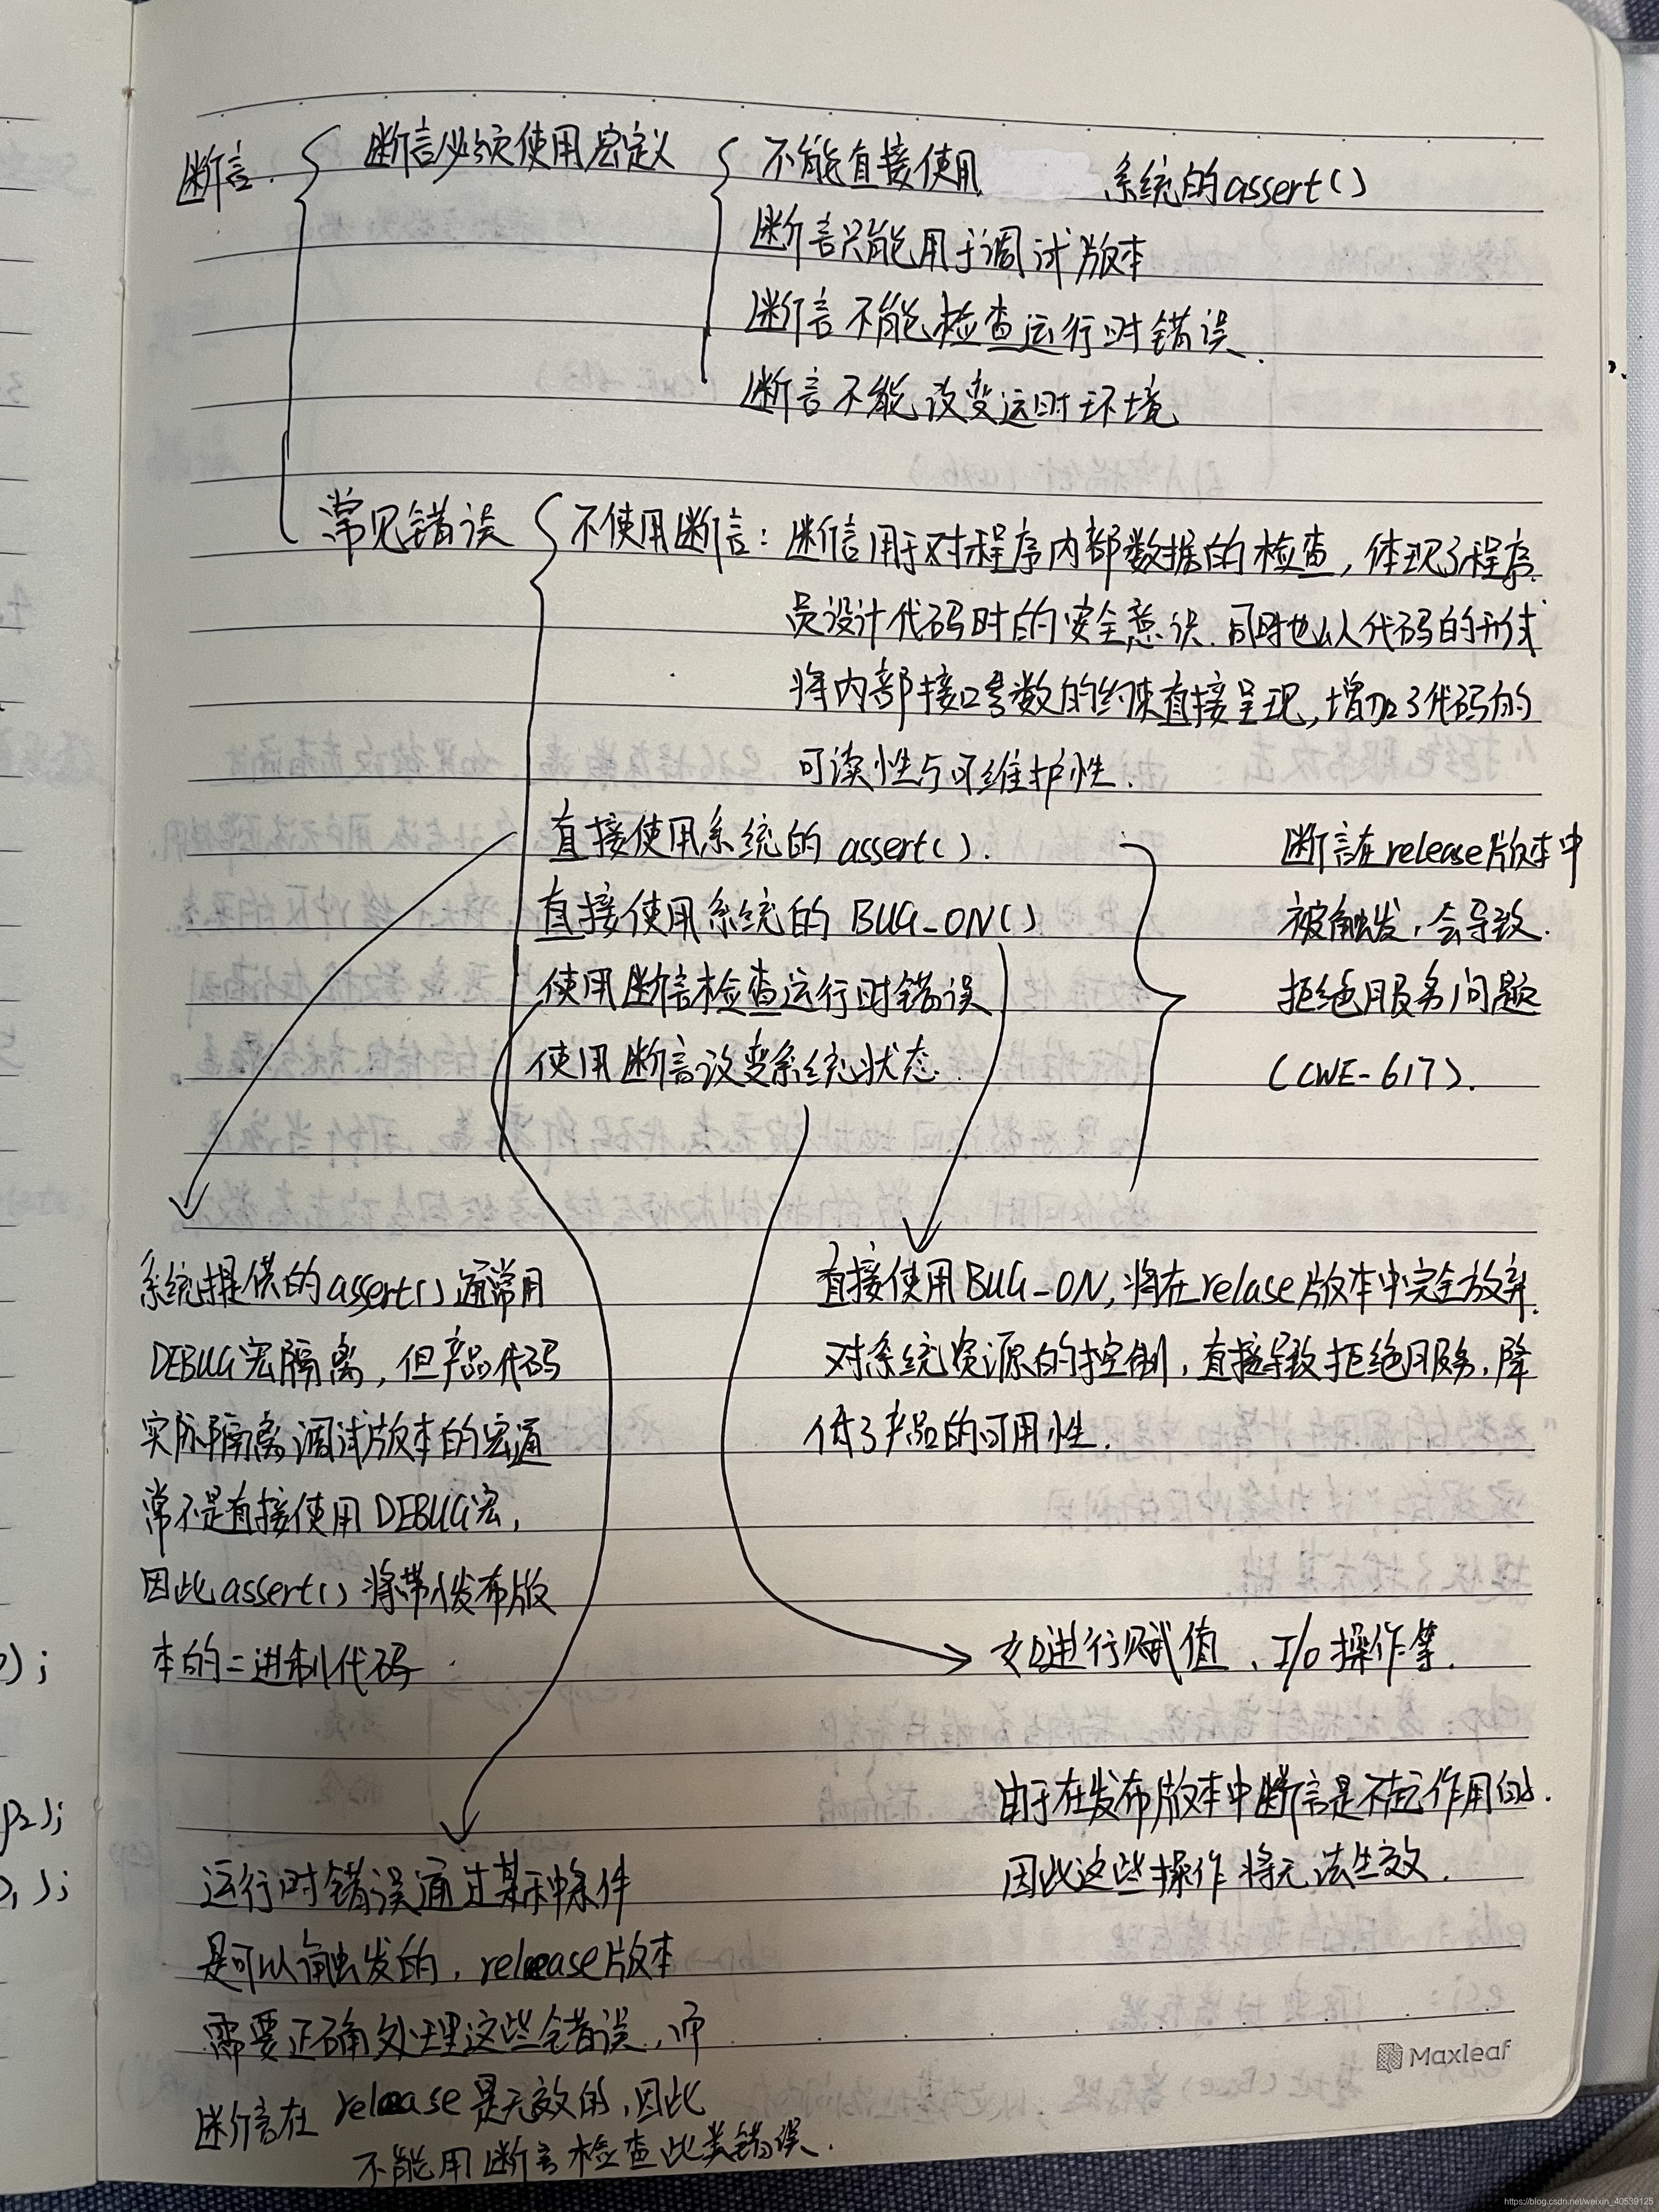 断言. 断言必须使用宏定义 不能直接使用 系统的assert()
断言只能用于调试版本
断言不能检查运行时错误.
断言不能改变运时环境
常见错误 不使用断言: 断言用于对程序内部数据的检查, 体现了程序
员设计代码时的安全意识. 同时也以代码的形式
将内部接口参数的约束直接呈现, 增加了代码的
可读性与可维护性.
直接使用系统的 assert().
直接使用系统的 BUG_ON()
使用断言检查运行时错误
使用断言改变系统状态.
断言在release版本中
被触发, 会导致.
拒绝服务问题
(CWE-617).
系统提供的assert()通常用
DEBUG宏隔离, 但产品代码
实际隔离调试版本的宏通
常不是直接使用DEBUG宏,
因此assert()将带入发布版
本的二进制代码.
直接使用BUG_ON, 将在relase版本中完全放弃.
对系统资源的控制, 直接导致拒绝服务, 降
低了产品的可用性.
如进行赋值、I/O操作等.
由于在发布版本中断言是不起作用的.
因此这些操作将无法生效.
运行时错误通过某种条件
是可以触发的, release版本
需要正确处理这些错误, 而
断言在release是无效的, 因此
不能用断言检查此类错误.
Maxleaf
);
P2);
);
https://blog.csdn.net/weixin_40539125